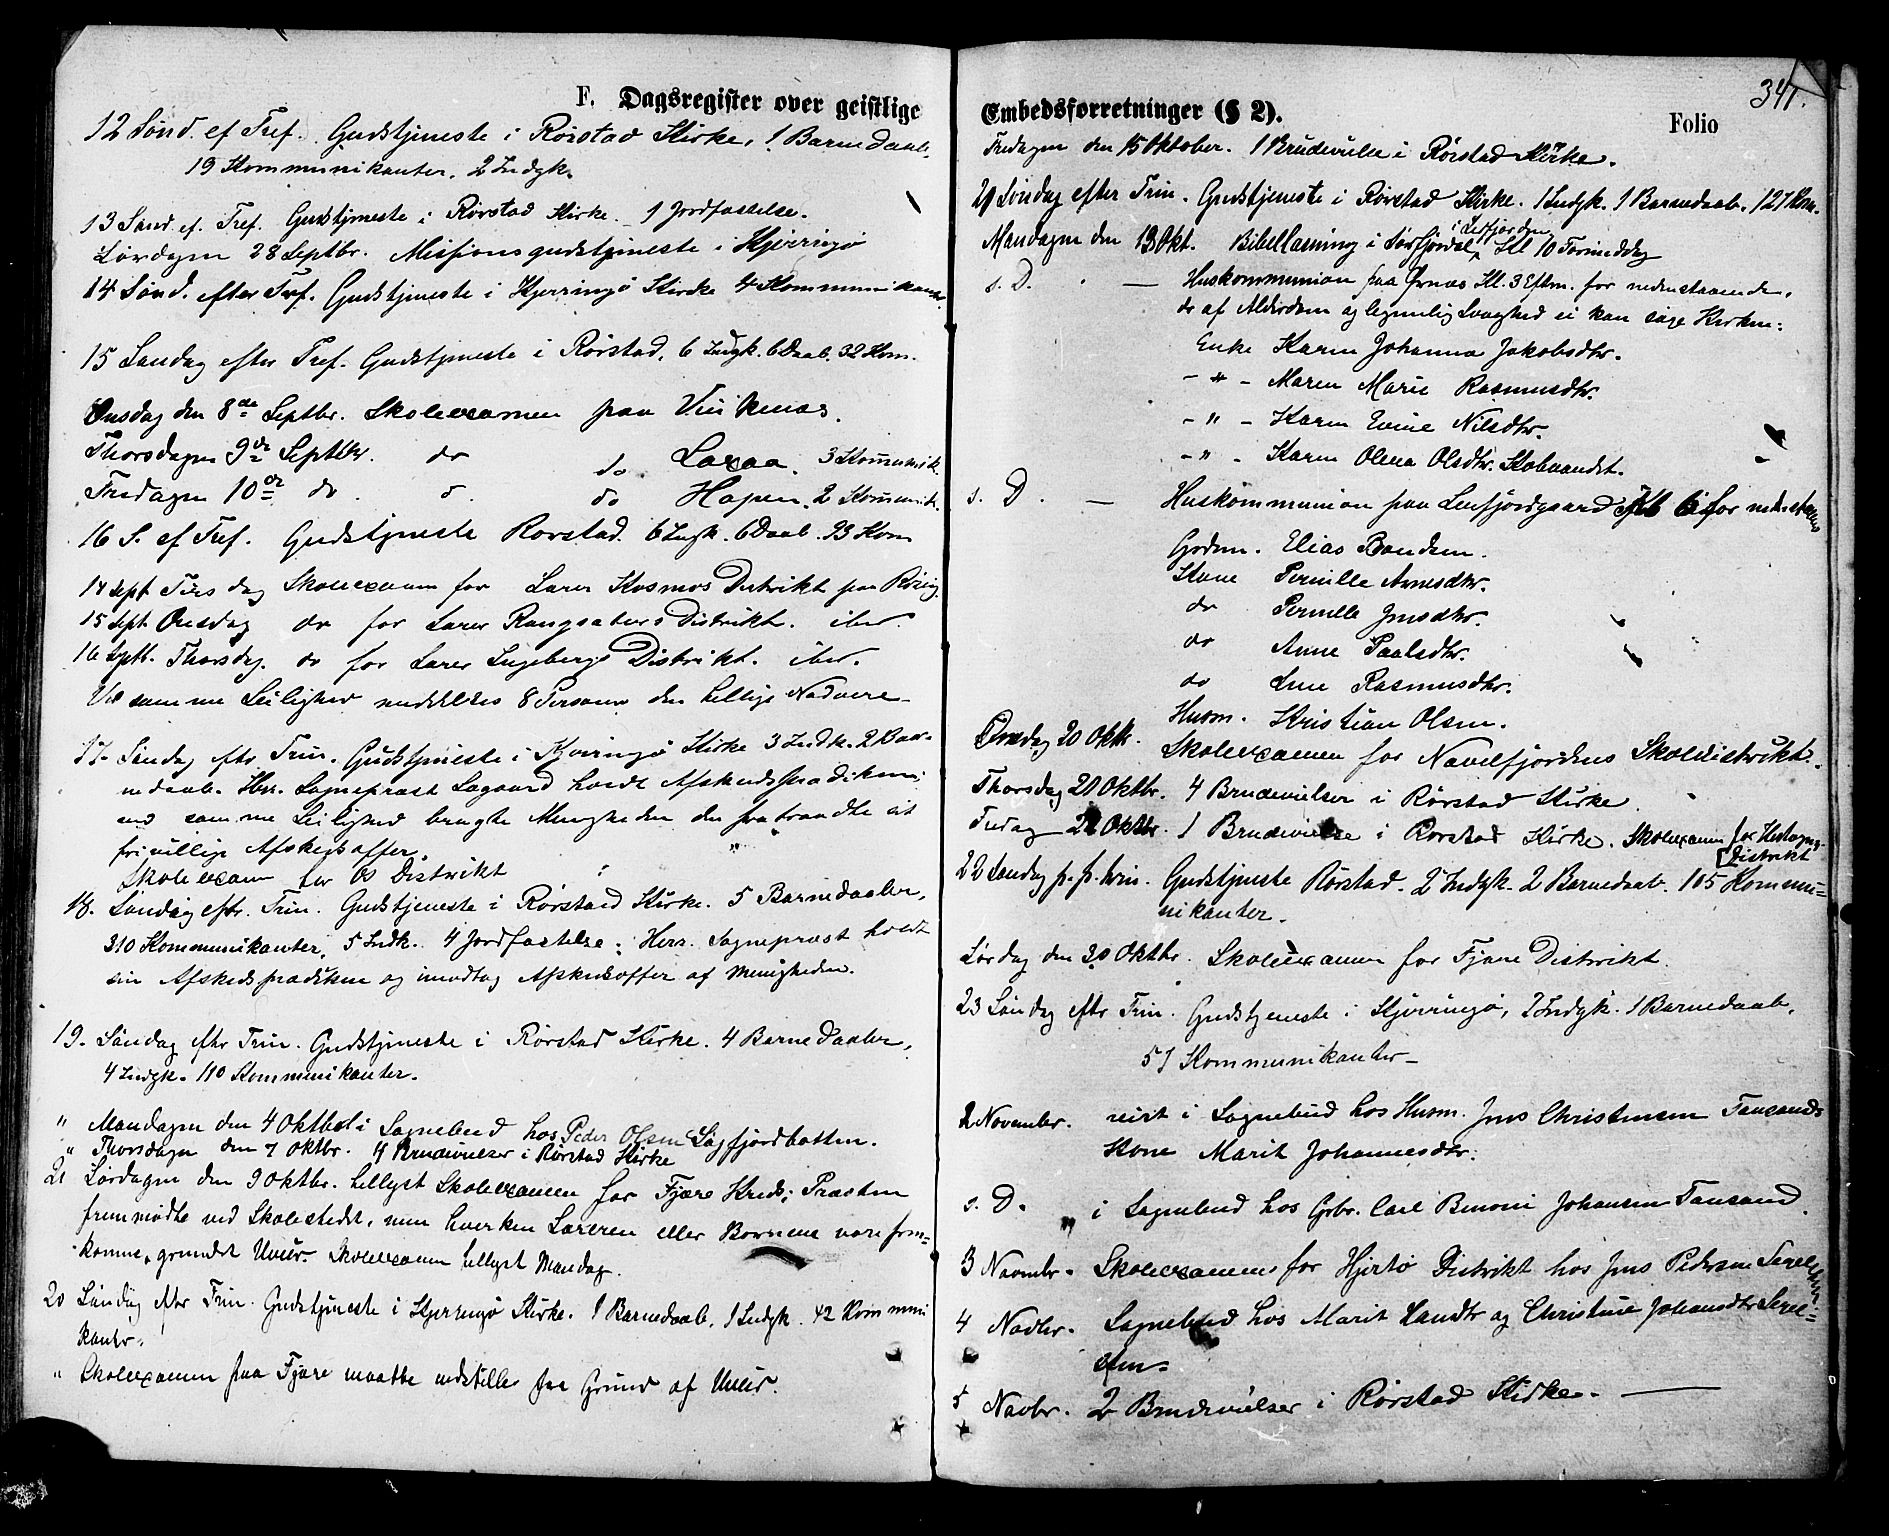 F. Dagsregister over geistlige
12 Sønd. ef Tref. Gudstjeneste i Rørstad Kirke, 1 Barnedaab,
19 Kommunikanter. 2 Indgk.
13 Sønd. ef. Tref. Gudstjeneste i Rørstad Kirke. 1 Jordfæstelse.
Lørdagen 28 Septbr. Missionsgudstjeneste i Kjerringø
14 Sønd. efter Tref. Gudstjeneste i Kjerringø Kirke 4 Kommunikanter
15 Søndag efter Tref. Gudstjeneste i Rørstad, 6 Indgk. 6 Daab. 32 Kom.
Onsdag den 8de Septbr. Skoleexamen paa
Thorsdagen 9de Septbr. do do Laxaa. 3 Kommunik.
Fredagen 10de do. d. do Hopen. 2 Kommunik.
16 S. ef Tref. Gudstjeneste Rørstad. 6 Indgk. 6 Daab. 93 Kom
14 Sept Tirsdag Skoleexamen for Lærer Kosmos Distrikt paa
15 Sept Onsdag do for Lærer Rangsæters Distrikt. iber.
16 Septb. Thorsdag. do for Lærer Ingebergs Distrikt. iber.
Ved samme Leilighed meddeltes 8 Personer den hellige Nadvere
17. Søndag eftr Trin. Gudstjeneste i Kjerringø Kirke 3 Indk. 2 Bar-
nedaab. Herr. Sogneprest Søgaard holdt Afskedsprædiken;
ved samme Leilighed bragte Menigheden den fratraadte sit
frivillige Afskedsoffer.
Skoleexamen for Os Distrikt
18. Søndag eftr. Trin. Gudstjeneste i Rørstad Kirke. 5 Barnedaaber,
310 Kommunikanter, 5 Indk. 4 Jordfæstelse; Herr. Sogneprest holdt
sin Afskedsprædiken og modtog Afskedsoffer af Menigheden.
19. Søndag eftr Trin. Gudstjeneste i Rørstad Kirke. 4 Barnedaaber,
4 Indgk. 110 Kommunikanter.
" Mandagen den 4 Oktbr i Sognebud hos Peder Olsen Lagfjordbotten.
" Thorsdagen den 7 Oktbr. 4 Brudevielser i Rørstad Kirke
21 Lørdagen den 9 Oktbr. tillyst Skoleexamen for Fjære Kreds; Præsten
fremmødte ved Skolestedet, men hverken Læreren eller Børnene vare frem-
komne, grundet Uveir. Skoleexamen tillyst Mandag.
20 Søndag eftr Trin. Gudstjeneste i Kjerringø Kirke. 1 Barnedaab, 1 Indgk. 42 Kommuni
kanter.
" Skoleexamen paa Fjære maatte indstilles paa Grund af Uveir.
Embedsforretninger (§ 2).
341.
Folio
Fredagen den 15 Oktober. 1 Brudevielse i Rørstad Kirke.
21 Søndag efter Trin. Gudstjeneste i Rørstad Kirke. 1 Indgk. 1 Barnedaab. 127 Kom.
i Leifjorden
Mandagen den 18 Okt. Bibellæsning i Sørfjordal, Kl 10 Formiddag
s. D. — Huskommunion paa Ørnes Kl. 3 Eftm. for nedenstaaende,
der af Alderdom og legemlig Svaghed ei kan søge Kirken:
Enke Karen Johanna Jakobsdtr.
- " - Maren Marie Rasmusdtr.
- " - Karen Evine Nilsdtr.
- " - Karen Olena Olsdtr. Kobvandet.
s. D. — Huskommunion paa Leifjordgaard Kl 6 for nedenstaaende
Grdm. Elias Bendsen.
Kone Pernille Arnesdtr.
do Pernille Jensdtr.
do Anne Paalsdtr.
do Line Rasmusdtr.
Husm. Kristian Olsen.
Onsdag 20 Oktb. Skoleexamen for Navelfjordens Skoledistrikt.
Thorsdag 21 Oktbr. 4 Brudevielser i Rørstad Kirke.
Fredag 22 Oktbr. 1 Brudevielse i Rørstad Kirke. Skoleexamen for
Distrikt
22 Søndag p. p. trin. Gudstjeneste Rørstad. 2 Indgk. 2 Barnedaab. 115 Kommu-
nikanter.
Lørdag den 30 Oktbr. Skoleexamen for Fjære Distrikt.
23 Søndag eftr Trin. Gudstjeneste i Kjerringø, 2 Indgk. 1 Barnedaab,
51 Kommunikanter
2 Novembr. reist i Sognebud hos Husm. Jens Christensen Tausands
Kone Marit Johannesdtr.
s. D. i Sognebud hos Grbr. Carl Benoni Johansen Tausand.
3 Novmbr. Skoleexamen for Hjertø Distrikt hos Jens Pedersen
4 Novbr. Sognebud hos Marit Handtr og Christine Johansdtr
5 Novbr. 2 Brudevielser i Rørstad Kirke.